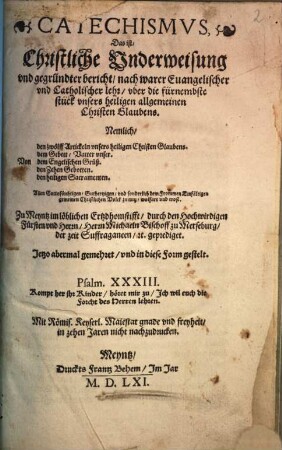 2
CATECHISMVS,
Das ist/
Christliche Vnderweisung
vnd gegründter bericht/ nach warer Euangelischer
vnd Catholischer lehr/ vber die fürnembste
stück vnsers heiligen allgemeinen
Christen Glaubens.
Nemlich/
den zwölff Artickeln vnsers heiligen Christen Glaubens.
dem Gebett/ Vatter vnser.
Von dem Engelischen Grůß.
den Zehen Gebotten.
den heiligen Sacramenten.
Allen Gottsförchtigen/ Guthertzigen/ vnd sonderlich dem Frommen Einfältigen
gemeinen Christlichen Volck zu nutz/ wolfart vnd trost.
Zu Meyntz im löblichen Ertzdhomstifft/ durch den Hochwirdigen
Fürsten vnd Herrn/ Herrn Michaeln Bischoff zu Merseburg/
der zeit Suffraganeen/ ꝛc. geprediget.
Jetzo abermal gemehret/ vnd in diese Form gestelt.
Psalm. XXXIII.
Kompt her jhr Kinder/ höret mir zu/ Ich wil euch die
Forcht des Herren lehren.
Mit Römis. Keyserl. Maiestat gnade vnd freyheit/
in zehen Jaren nicht nachzudrucken.
Meyntz/
Druckts Frantz Behem/ Im Jar
M. D. LXI.